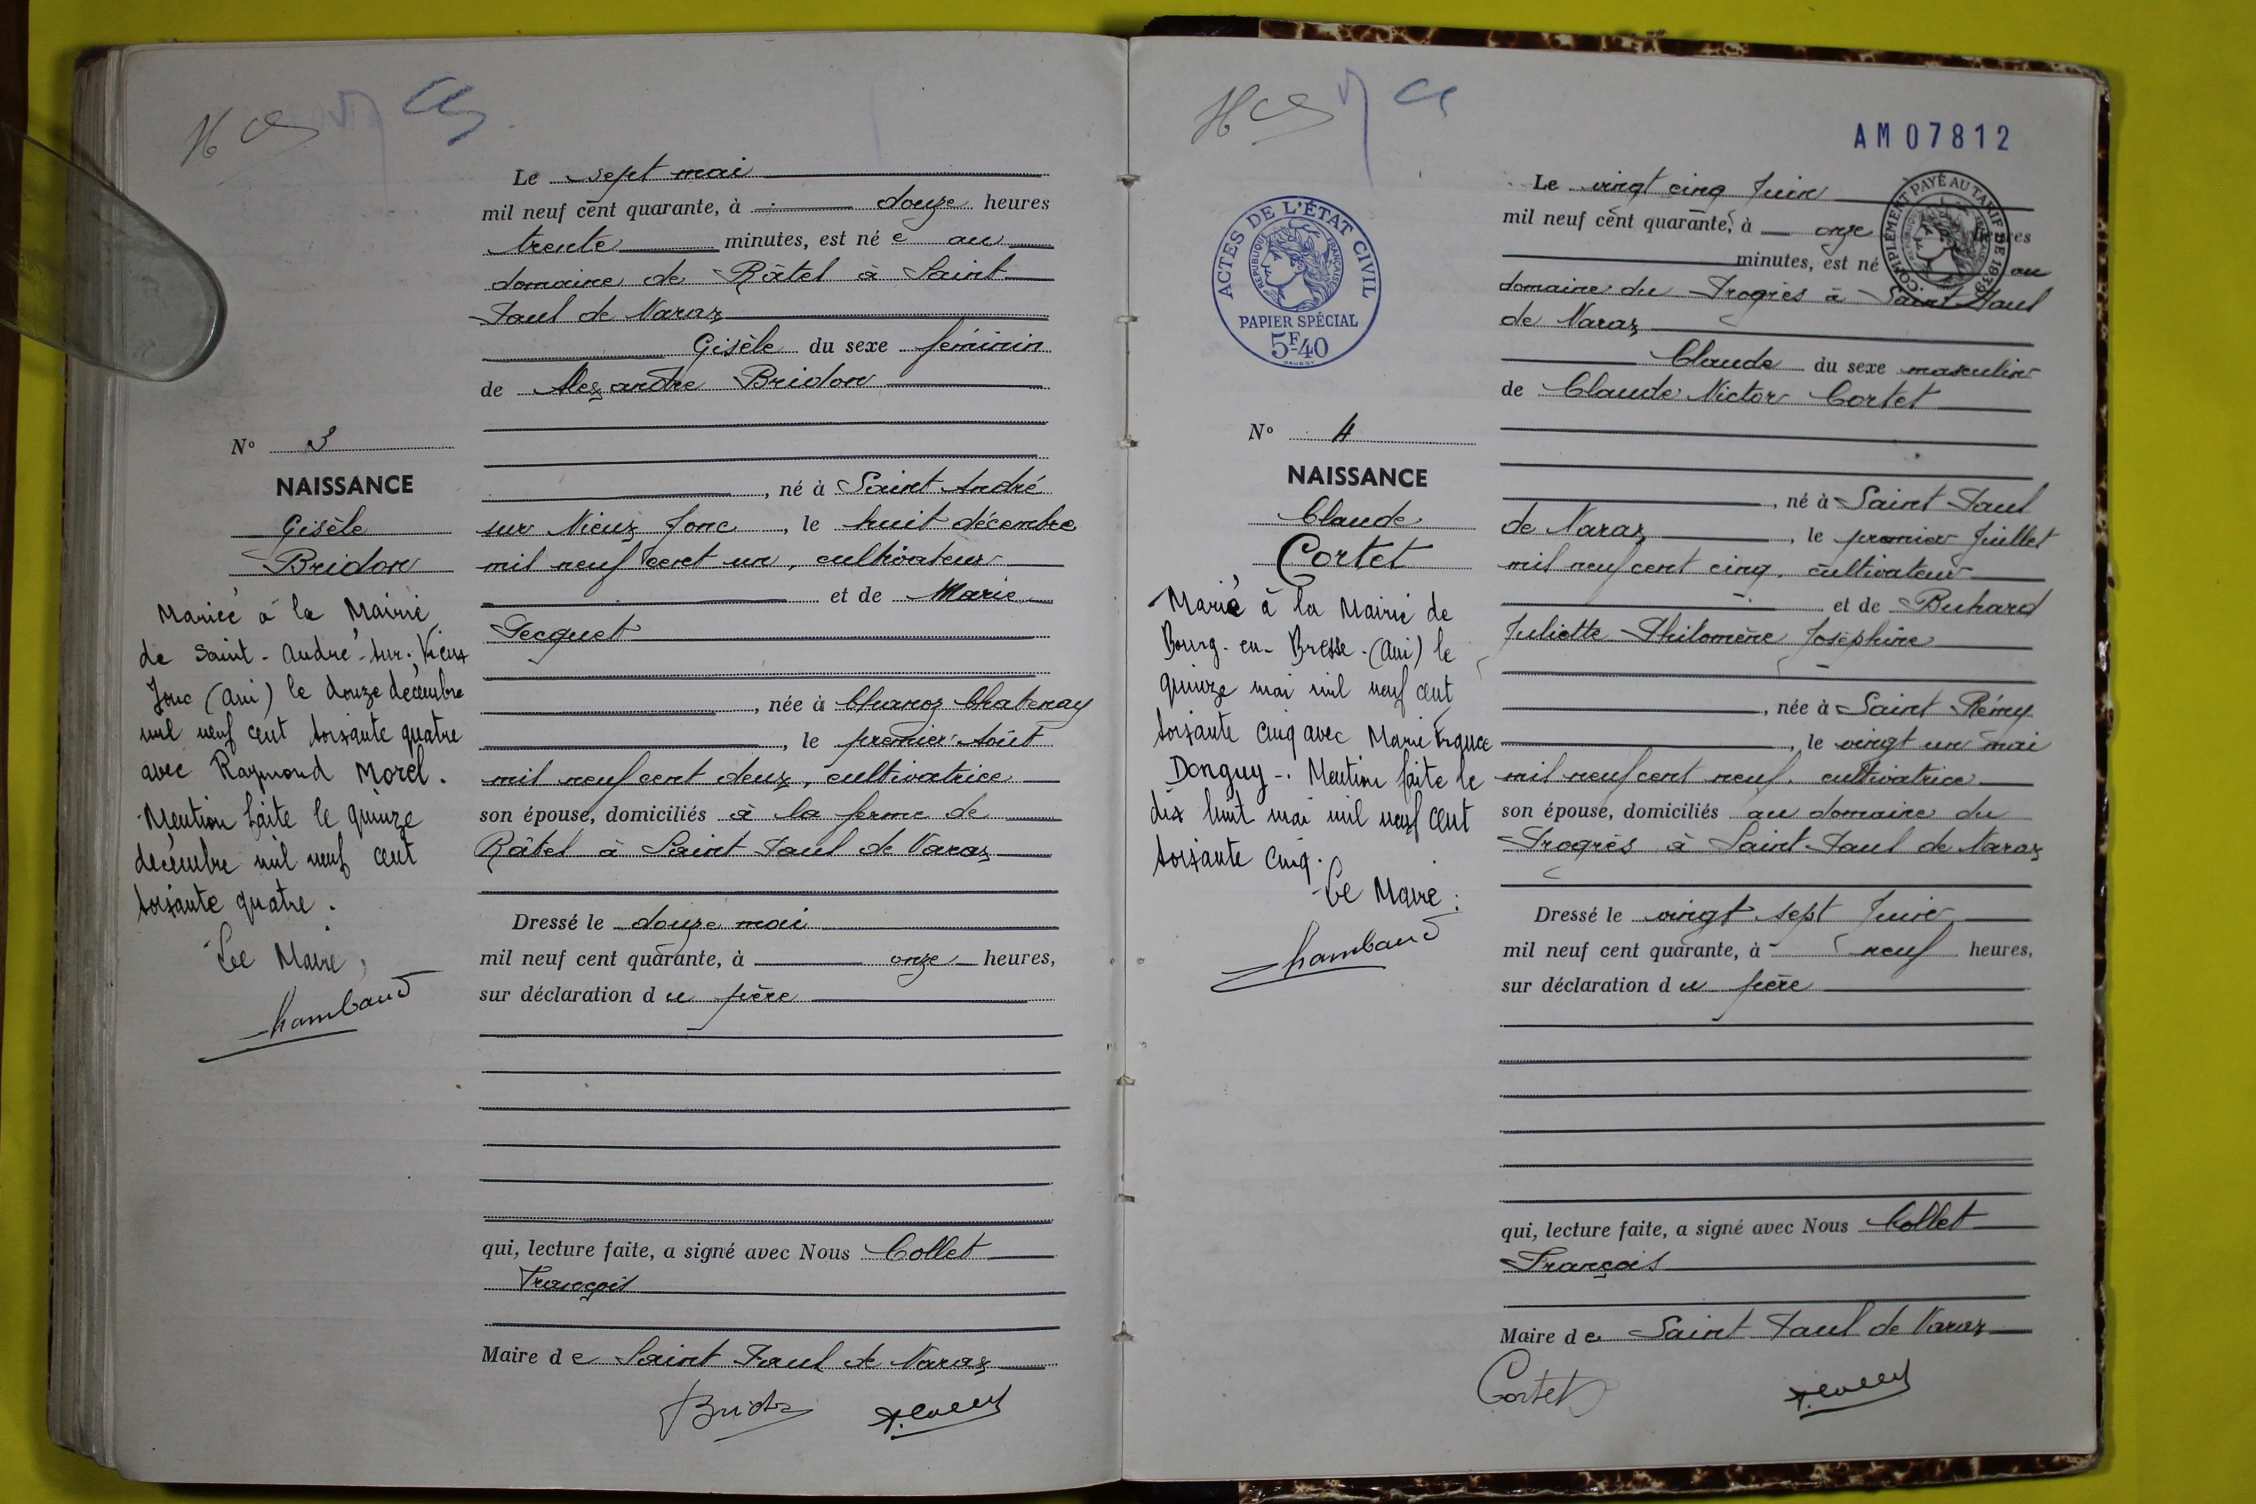 Le sept mai
mil neuf cent quarante, à douze heures
trente minutes, est né e au
domaine de Râtel à Saint
Paul de Varax
Gisèle du sexe féminin
de Alexandre Bridon
, né à Saint André
sur Vieux Jonc, le huit décembre
mil neuf cent un, cultivateur
et de Marie
Pecquet
, née à Chanoz Chatenay
, le premier Août
mil neuf cent deux, cultivatrice
son épouse, domiciliés à la ferme de
Râtel à Saint Paul de Varax
Dressé le douze mai
mil neuf cent quarante, à onze heures,
sur déclaration d u père
qui, lecture faite, a signé avec Nous Collet
François
Maire d e Saint Paul de Varax
Bridon F. Collet
N° 3
NAISSANCE
Gisèle
Bridon
Mariée à la Mairie
de Saint-André-sur-Vieux
Jonc (Ain) le douze décembre
mil neuf cent soixante quatre
avec Raymond Morel.
Mention faite le quinze
décembre mil neuf cent
soixante quatre.
Le Maire,
Chambaud
AM07812
ACTES DE L'ÉTAT CIVIL
RÉPUBLIQUE FRANÇAISE
PAPIER SPÉCIAL
5F40
COMPLÉMENT PAYÉ AU TARIF DE 19
Le vingt cinq Juin
mil neuf cent quarante, à onze heures
minutes, est né au
domaine du Progrès à Saint Paul
de Varax
Claude du sexe masculin
de Claude Victor Cortet
, né à Saint Paul
de Varax, le premier Juillet
mil neuf cent cinq, cultivateur
et de Buhard
Juliette Philomène Joséphine
, née à Saint Rémy
, le vingt un mai
mil neuf cent neuf, cultivatrice
son épouse, domiciliés au domaine du
Progrès à Saint-Paul de Varax
Dressé le vingt sept Juin
mil neuf cent quarante, à neuf heures,
sur déclaration d u père
qui, lecture faite, a signé avec Nous Collet
François
Maire d e Saint Paul de Varax
Cortet F. Collet
N° 4
NAISSANCE
Claude
Cortet
Marié à la Mairie de
Bourg-en-Bresse-(Ain) le
quinze mai mil neuf cent
soixante cinq avec Marie France
Donguy-. Mention faite le
dix huit mai mil neuf cent
soixante cinq.
Le Maire :
Chambaud